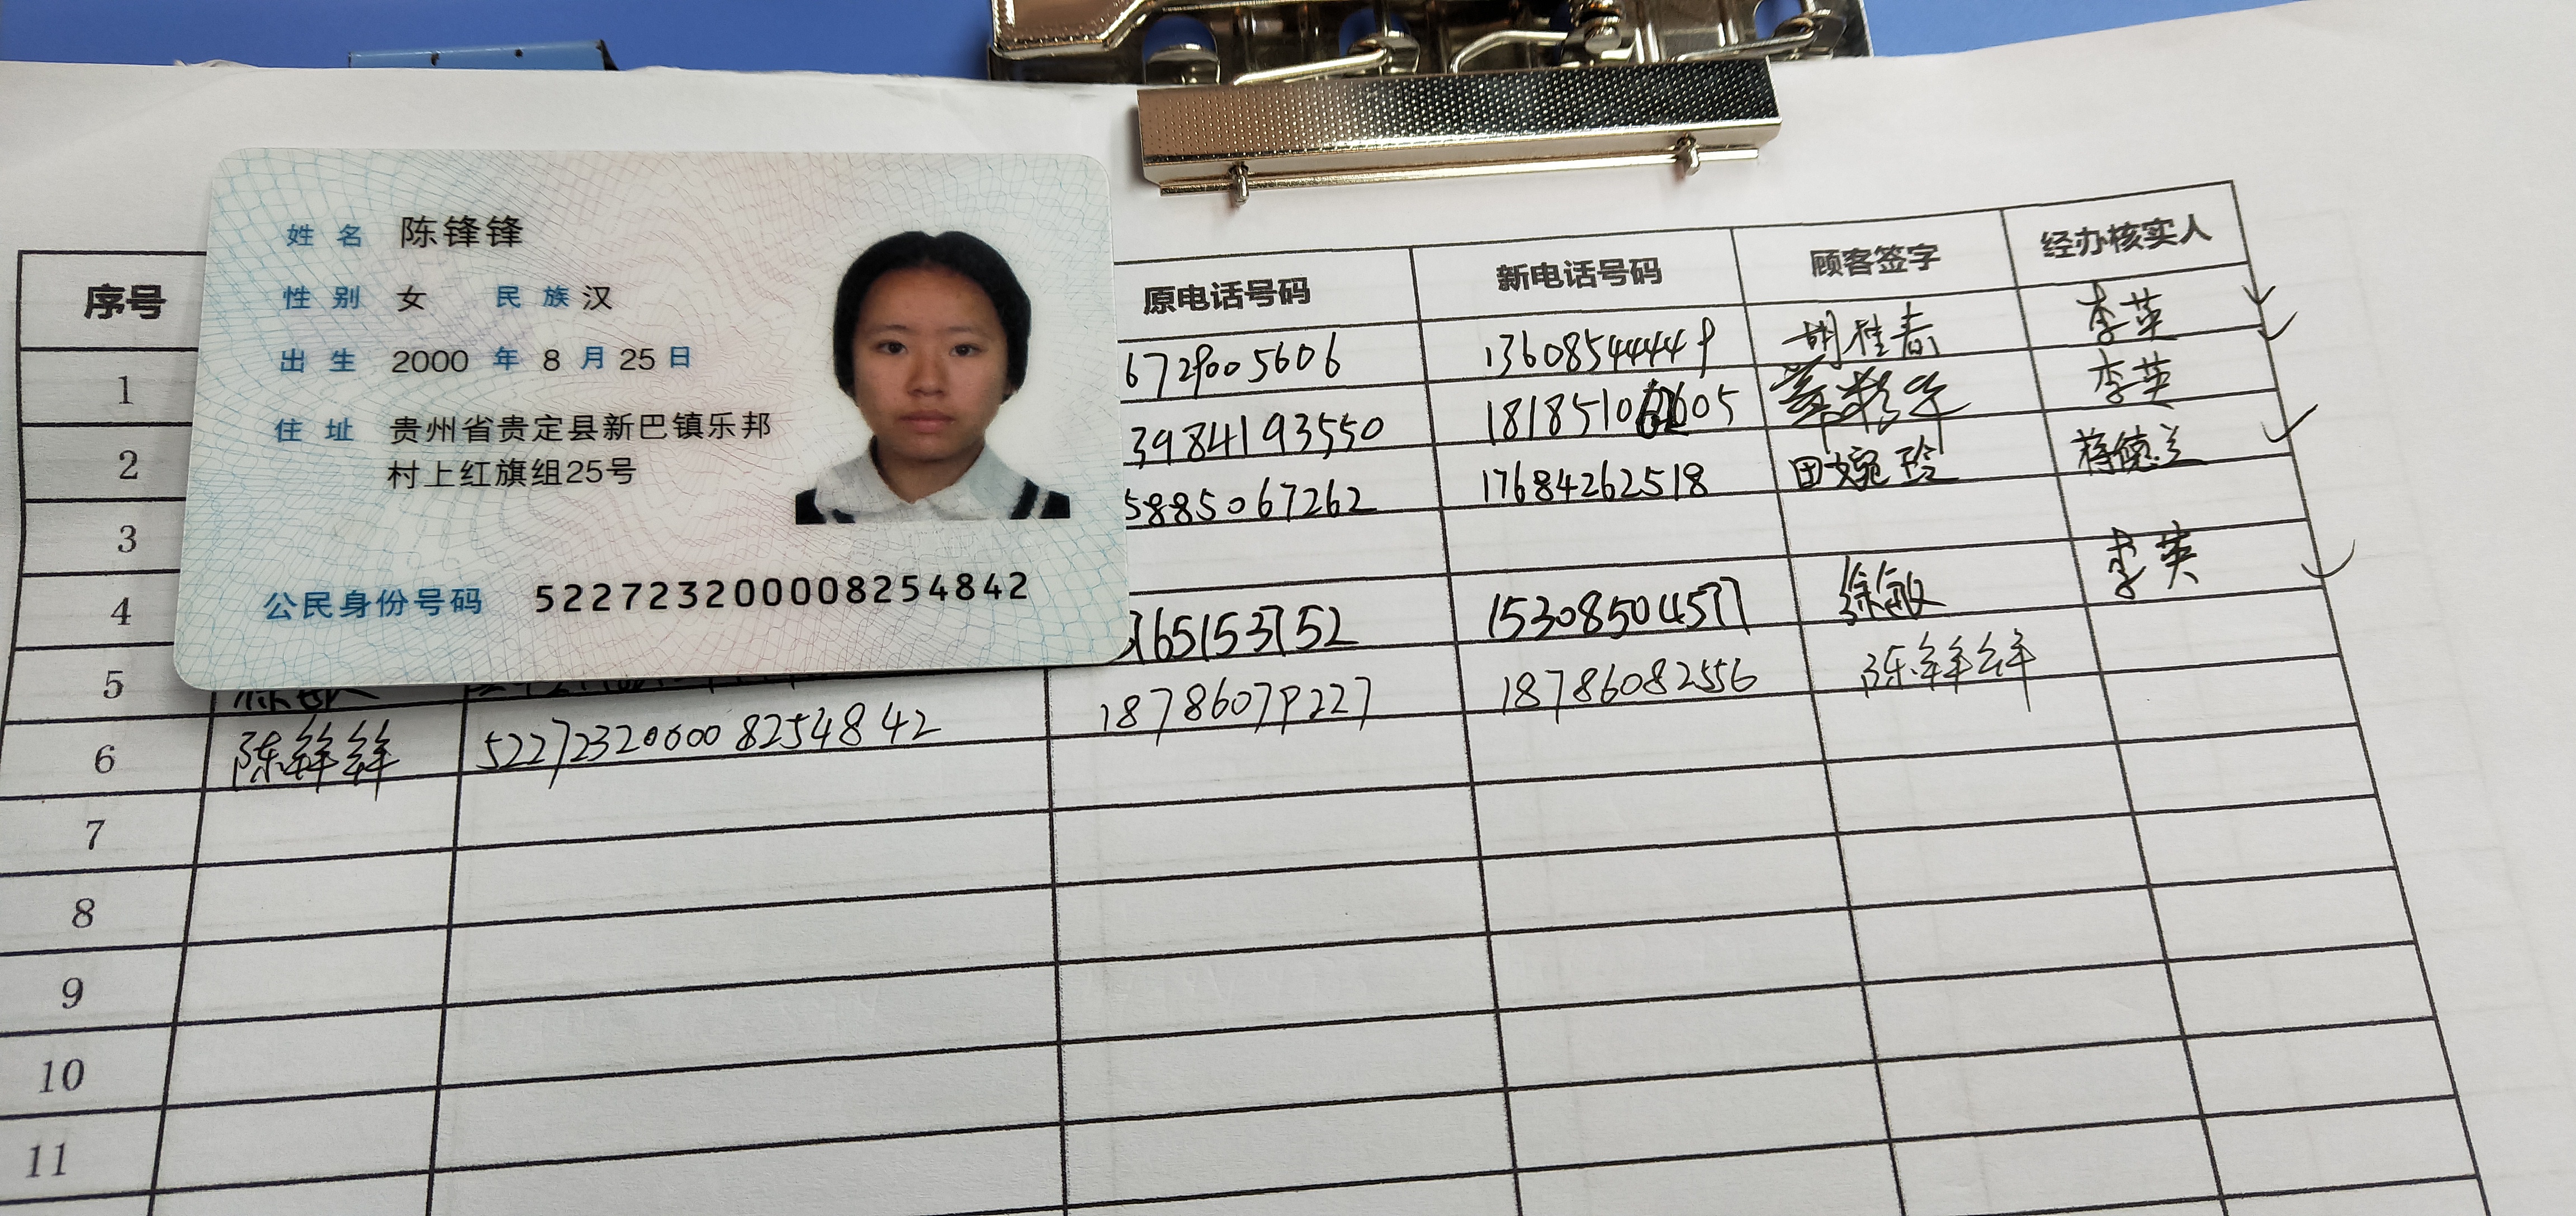 姓名 陈锋锋
性别 女 民族 汉
出生 2000 年 8 月 25 日
住址 贵州省贵定县新巴镇乐邦
村上红旗组25号
公民身份号码 522723200008254842
序号 原电话号码 新电话号码 顾客签字 经办核实人
1 6729005606 13608544449 胡桂春 李英
2 3984193550 李英
3 5885067262 17684262518 田婉玲 蒋德兰
4
5 765153752 15308504577 徐敏 李英
6 陈锋锋 522723200008254842 18786079227 18786082556 陈锋锋
7
8
9
10
11